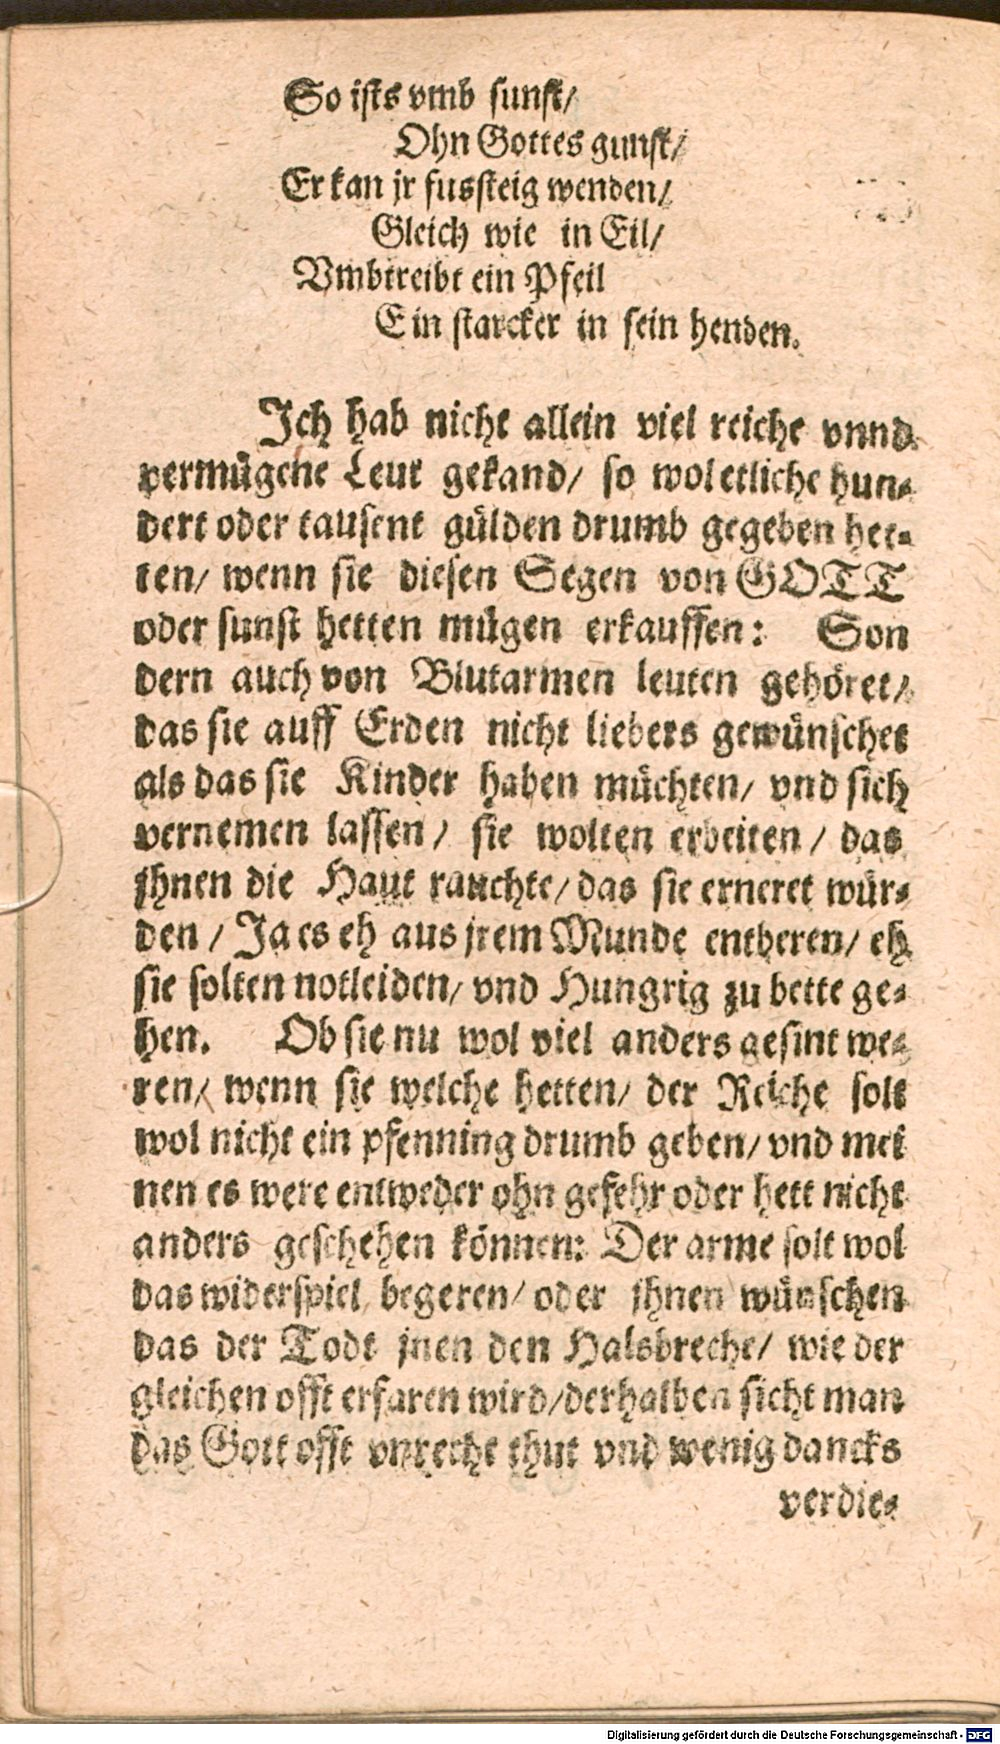 So ists vmb sunst/
Ohn Gottes gunst/
Er kan jr fussteig wenden/
Gleich wie in Eil/
Vmbtreibt ein Pfeil
Ein starcker in sein henden.
Ich hab nicht allein viel reiche vnnd
vermügene Leut gekand/ so wol etliche hun-
dert oder tausent gülden drumb gegeben het-
ten/ wenn sie diesen Segen von GOTT
oder sunst hetten mügen erkauffen: Son
dern auch von Blutarmen leuten gehöret/
das sie auff Erden nicht liebers gewünschet
als das sie Kinder haben müchten/ vnd sich
vernemen lassen/ sie wolten erbeiten/ das
jhnen die Haut rauchte/ das sie erneret wür-
den/ Ja es eh aus jrem Munde entberen/ eh
sie solten notleiden/ vnd Hungrig zu bette ge-
hen. Ob sie nu wol viel anders gesint we-
ren/ wenn sie welche hetten/ der Reiche solt
wol nicht ein pfenning drumb geben/ vnd mei
nen es were entweder ohn gefehr oder hett nicht
anders geschehen können: Der arme solt wol
das widerspiel begeren/ oder jhnen wünschen
das der Todt jnen den Halsbreche/ wie der
gleichen offt erfaren wird/ derhalben sicht man
das Gott offt vnrecht thut vnd wenig dancks
verdie-
Digitalisierung gefördert durch die Deutsche Forschungsgemeinschaft - DFG